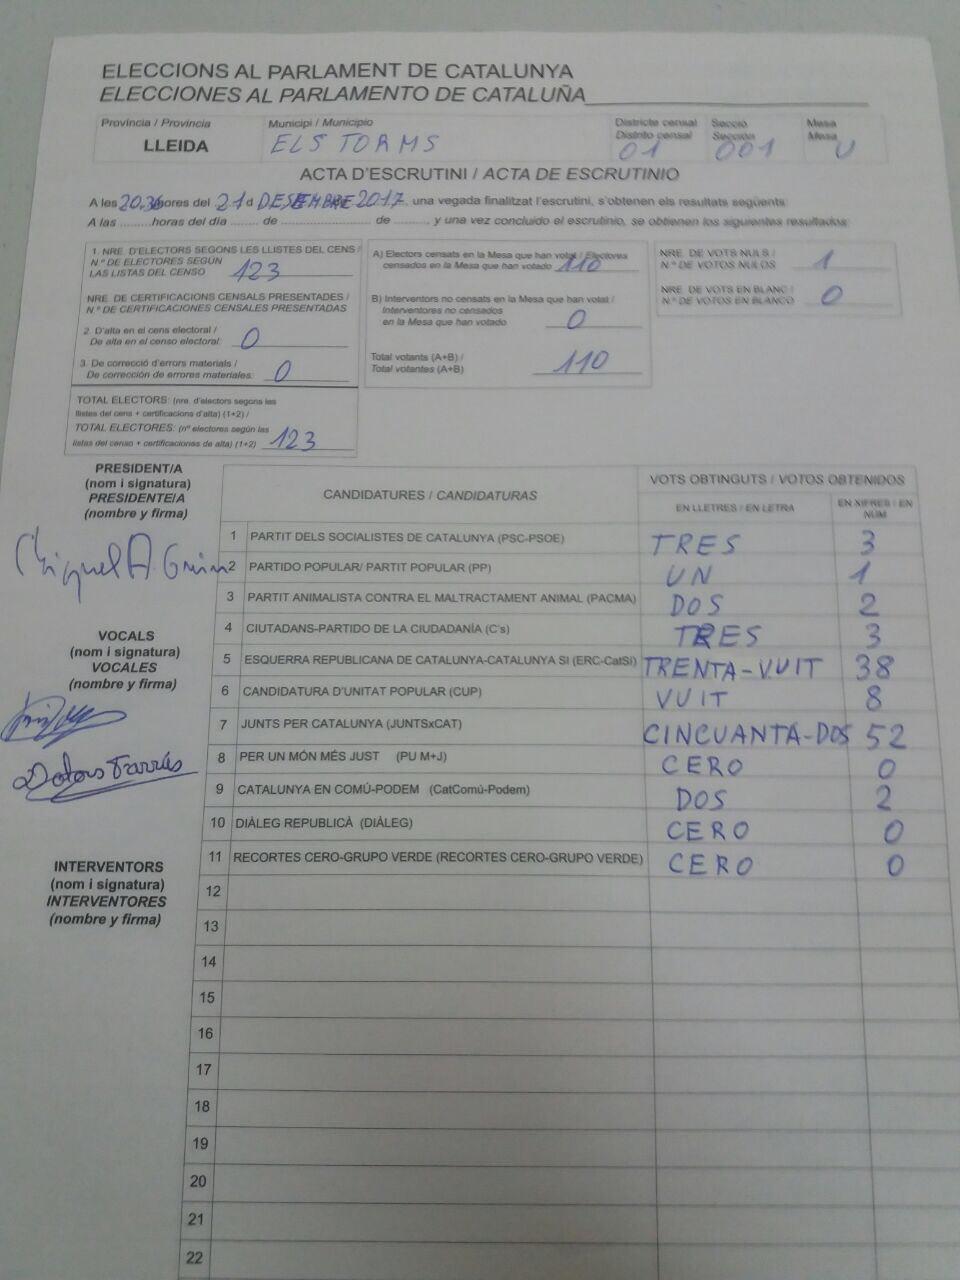 ELECCIONS AL PARLAMENT DE CATALUNYA
ELECCIONES AL PARLAMENTO DE CATALUÑA
Província / Provincia
LLEIDA
Municipi / Municipio
ELS TORMS
Districte censal
Distrito censal
01
Secció
Sección
001
Mesa
Mesa
U
ACTA D'ESCRUTINI / ACTA DE ESCRUTINIO
A les 20.36 hores del 21 d DESEMBRE 2017, una vegada finalitzat l'escrutini, s'obtenen els resultats següents:
A las .........horas del día ........ de .......................... de ........., y una vez concluido el escrutinio, se obtienen los siguientes resultados:
1. NRE. D'ELECTORS SEGONS LES LLISTES DEL CENS /
N.º DE ELECTORES SEGÚN
LAS LISTAS DEL CENSO 123
NRE. DE CERTIFICACIONS CENSALS PRESENTADES /
N.º DE CERTIFICACIONES CENSALES PRESENTADAS
2. D'alta en el cens electoral /
De alta en el censo electoral: 0
3. De correcció d'errors materials /
De corrección de errores materiales: 0
TOTAL ELECTORS: (nre. d'electors segons les
llistes del cens + certificacions d'alta) (1+2) /
TOTAL ELECTORES: (nº electores según las
listas del censo + certificaciones de alta) (1+2) 123
A) Electors censats en la Mesa que han votat / Electores
censados en la Mesa que han votado 110
B) Interventors no censats en la Mesa que han votat /
Interventores no censados
en la Mesa que han votado 0
Total votants (A+B) /
Total votantes (A+B) 110
NRE. DE VOTS NULS /
N.º DE VOTOS NULOS 1
NRE. DE VOTS EN BLANC /
N.º DE VOTOS EN BLANCO 0
PRESIDENT/A
(nom i signatura)
PRESIDENTE/A
(nombre y firma)
VOCALS
(nom i signatura)
VOCALES
(nombre y firma)
Dolors Farrús
INTERVENTORS
(nom i signatura)
INTERVENTORES
(nombre y firma)
CANDIDATURES / CANDIDATURAS
VOTS OBTINGUTS / VOTOS OBTENIDOS
EN LLETRES / EN LETRA
EN XIFRES / EN
NÚM
1 PARTIT DELS SOCIALISTES DE CATALUNYA (PSC-PSOE) TRES 3
2 PARTIDO POPULAR/ PARTIT POPULAR (PP) UN 1
3 PARTIT ANIMALISTA CONTRA EL MALTRACTAMENT ANIMAL (PACMA) DOS 2
4 CIUTADANS-PARTIDO DE LA CIUDADANÍA (C's) TRES 3
5 ESQUERRA REPUBLICANA DE CATALUNYA-CATALUNYA SÍ (ERC-CatSí) TRENTA-VUIT 38
6 CANDIDATURA D'UNITAT POPULAR (CUP) VUIT 8
7 JUNTS PER CATALUNYA (JUNTSxCAT) CINCUANTA-DOS 52
8 PER UN MÓN MÉS JUST (PU M+J) CERO 0
9 CATALUNYA EN COMÚ-PODEM (CatComú-Podem) DOS 2
10 DIÀLEG REPUBLICÀ (DIÀLEG) CERO 0
11 RECORTES CERO-GRUPO VERDE (RECORTES CERO-GRUPO VERDE) CERO 0
12
13
14
15
16
17
18
19
20
21
22